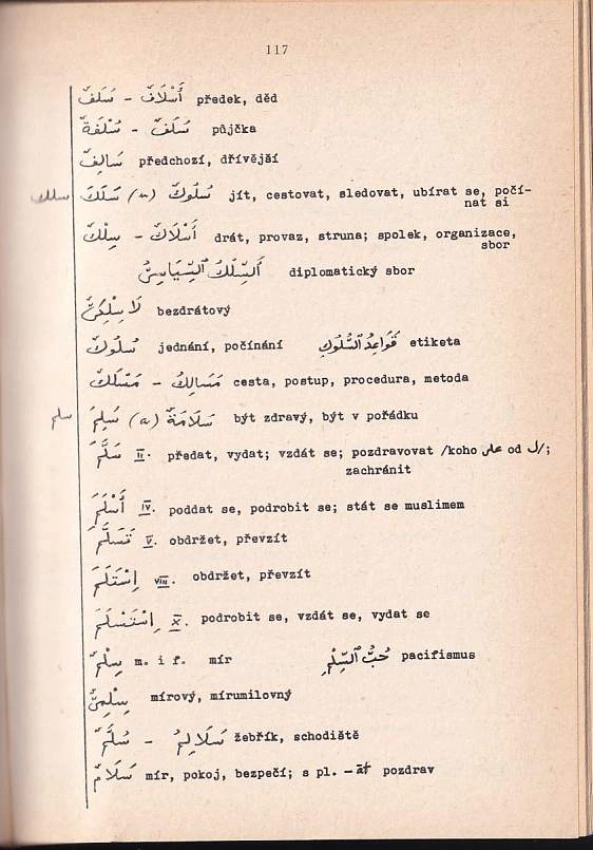 117
سَلَفٌ - أَسْلَافٌ předek, děd
سُلْفَةٌ - سُلَفٌ půjčka
سَالِفٌ předchozí, dřívější
سلك سَلَكَ (u) سُلُوكٌ jít, cestovat, sledovat, ubírat se, počí-
nat si
سِلْكٌ - أَسْلَاكٌ drát, provaz, struna; spolek, organizace,
sbor
اَلسِّلْكُ ٱلسِّيَاسِيُّ diplomatický sbor
لَاسِلْكِيٌّ bezdrátový
سُلُوكٌ jednání, počínání قَوَاعِدُ ٱلسُّلُوكِ etiketa
مَسْلَكٌ - مَسَالِكُ cesta, postup, procedura, metoda
سلم سَلِمَ (a) سَلَامَةٌ být zdravý, být v pořádku
سَلَّمَ II. předat, vydat; vzdát se; pozdravovat /koho على od ل/;
zachránit
أَسْلَمَ IV. poddat se, podrobit se; stát se muslimem
تَسَلَّمَ V. obdržet, převzít
اِسْتَلَمَ VIII. obdržet, převzít
اِسْتَسْلَمَ X. podrobit se, vzdát se, vydat se
سِلْمٌ m. i f. mír حُبُّ ٱلسِّلْمِ pacifismus
سِلْمِيٌّ mírový, mírumilovný
سُلَّمٌ - سَلَالِمُ žebřík, schodiště
سَلَامٌ mír, pokoj, bezpečí; s pl. -āt pozdrav